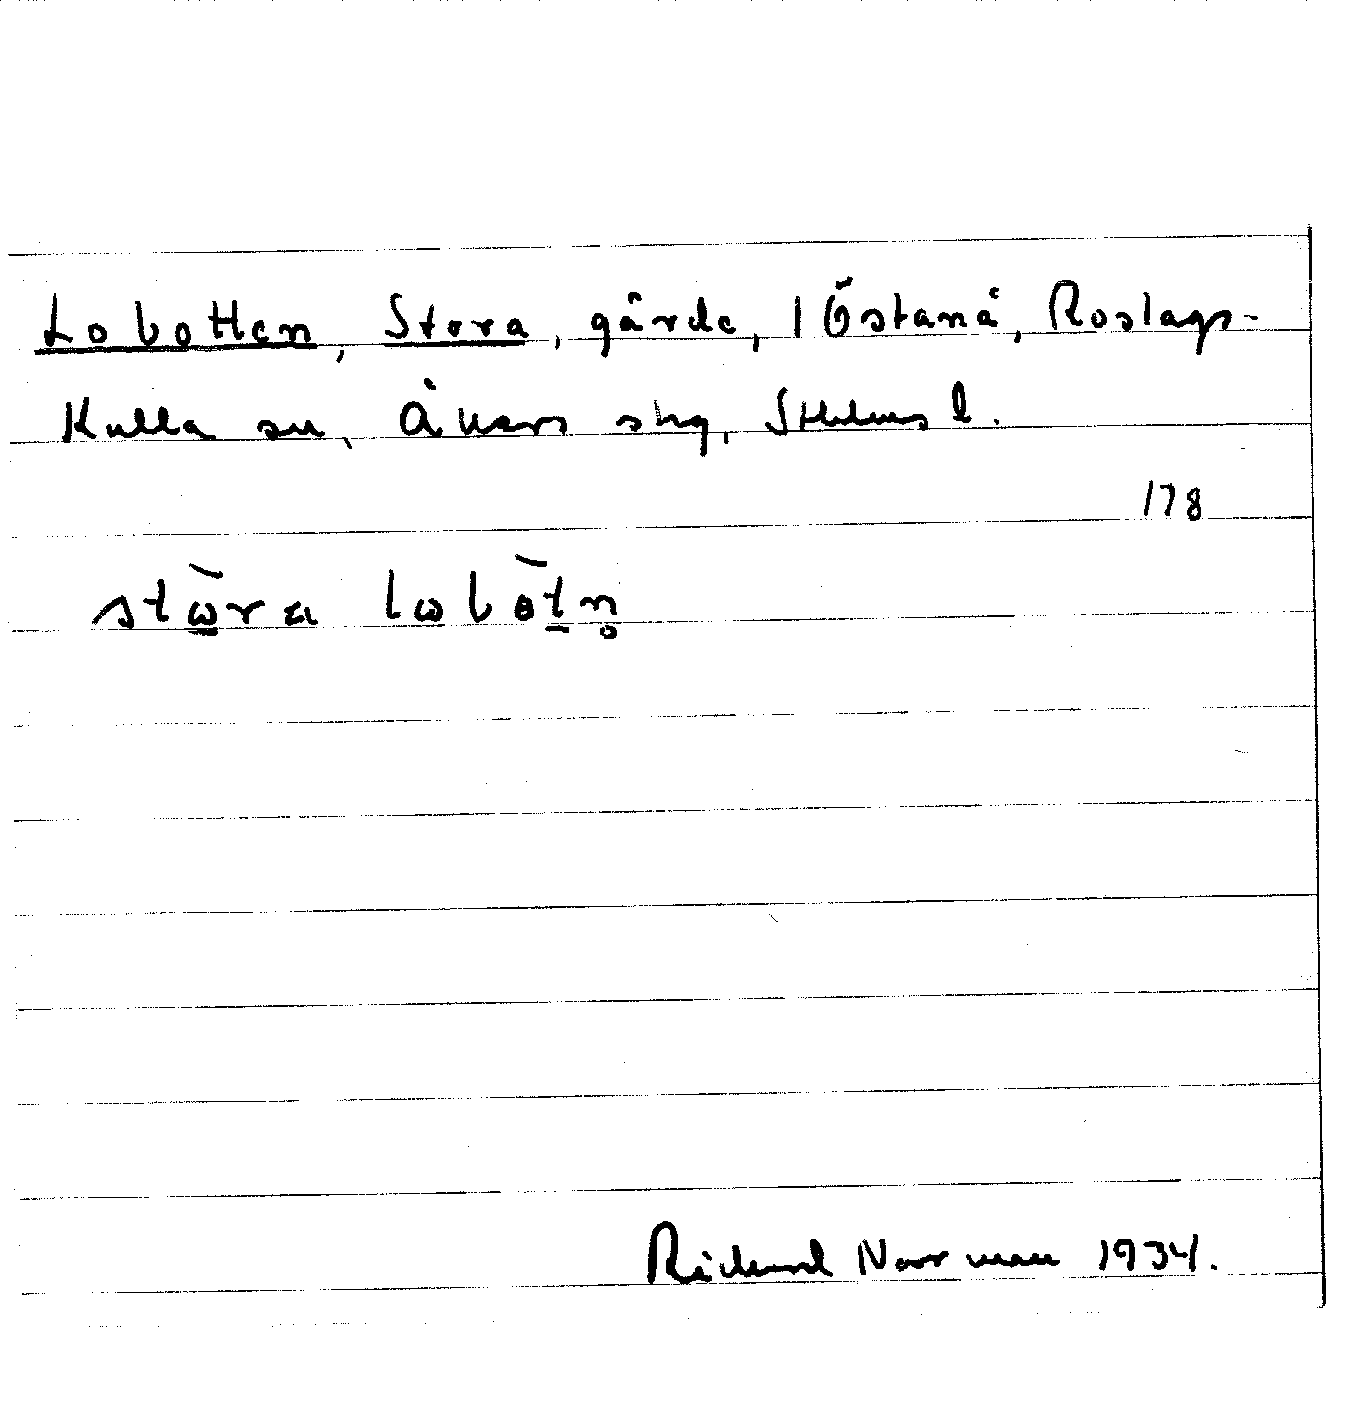 Lobotten, Stora, gärde, 1 Östanå, Roslags-
Kulla sn, Åkers skg, Sthlms l.
178
stὼra lωbòtn̥
Richard Norrman 1934.